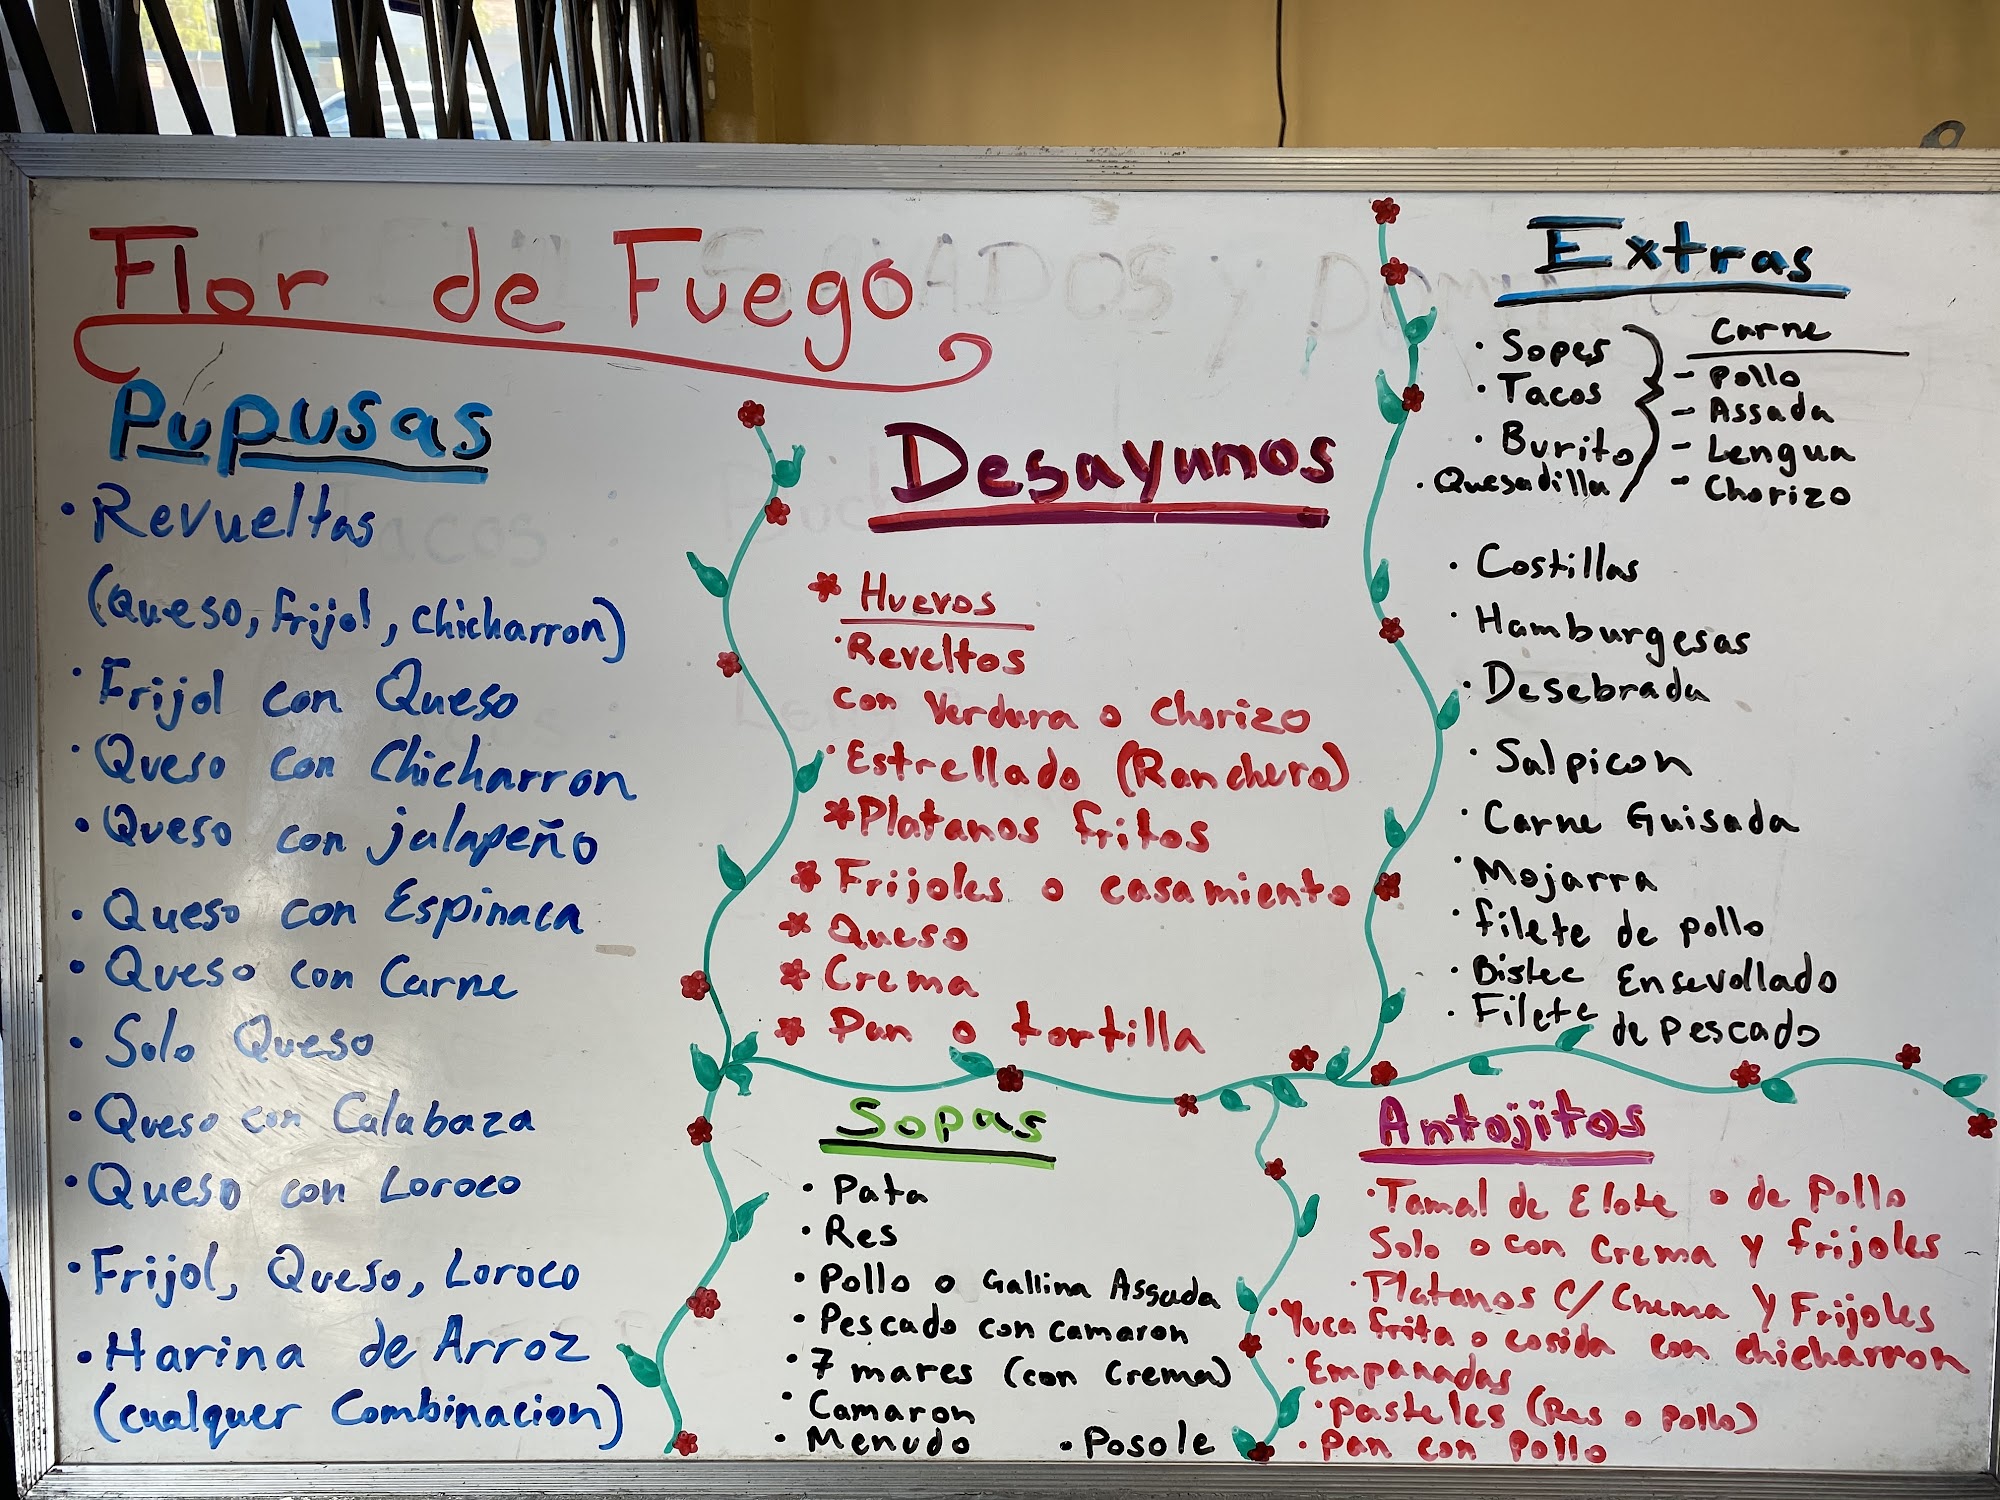 Flor de Fuego
Pupusas
• Revueltas
(Queso, frijol, chicharron)
• Frijol con Queso
• Queso con Chicharron
• Queso con jalapeño
• Queso con Espinaca
• Queso con Carne
• Solo Queso
• Queso con Calabaza
• Queso con Loroco
• Frijol, Queso, Loroco
• Harina de Arroz
(cualquer Combinacion)
Desayunos
* Huevos
• Reveltos
con Verdura o Chorizo
• Estrellado (Ranchero)
* Platanos fritos
* Frijoles o casamiento
* Queso
* Crema
* Pan o tortilla
Extras
• Sopes
• Tacos
• Burito
• Quesadilla
Carne
- Pollo
- Assada
- Lengua
- Chorizo
• Costillas
• Hamburgesas
• Desebrada
• Salpicon
• Carne Guisada
• Mojarra
• filete de pollo
• Bistec Ensevollado
• Filete de pescado
Sopas
• Pata
• Res
• Pollo o Gallina Assada
• Pescado con camaron
• 7 mares (con Crema)
• Camaron
• Menudo
• Posole
Antojitos
• Tamal de Elote o de Pollo
Solo o con Crema y frijoles
• Platanos C/ Crema y Frijoles
• Yuca frita o cosida con chicharron
• Empanadas
• pasteles (Res o pollo)
• Pan con Pollo